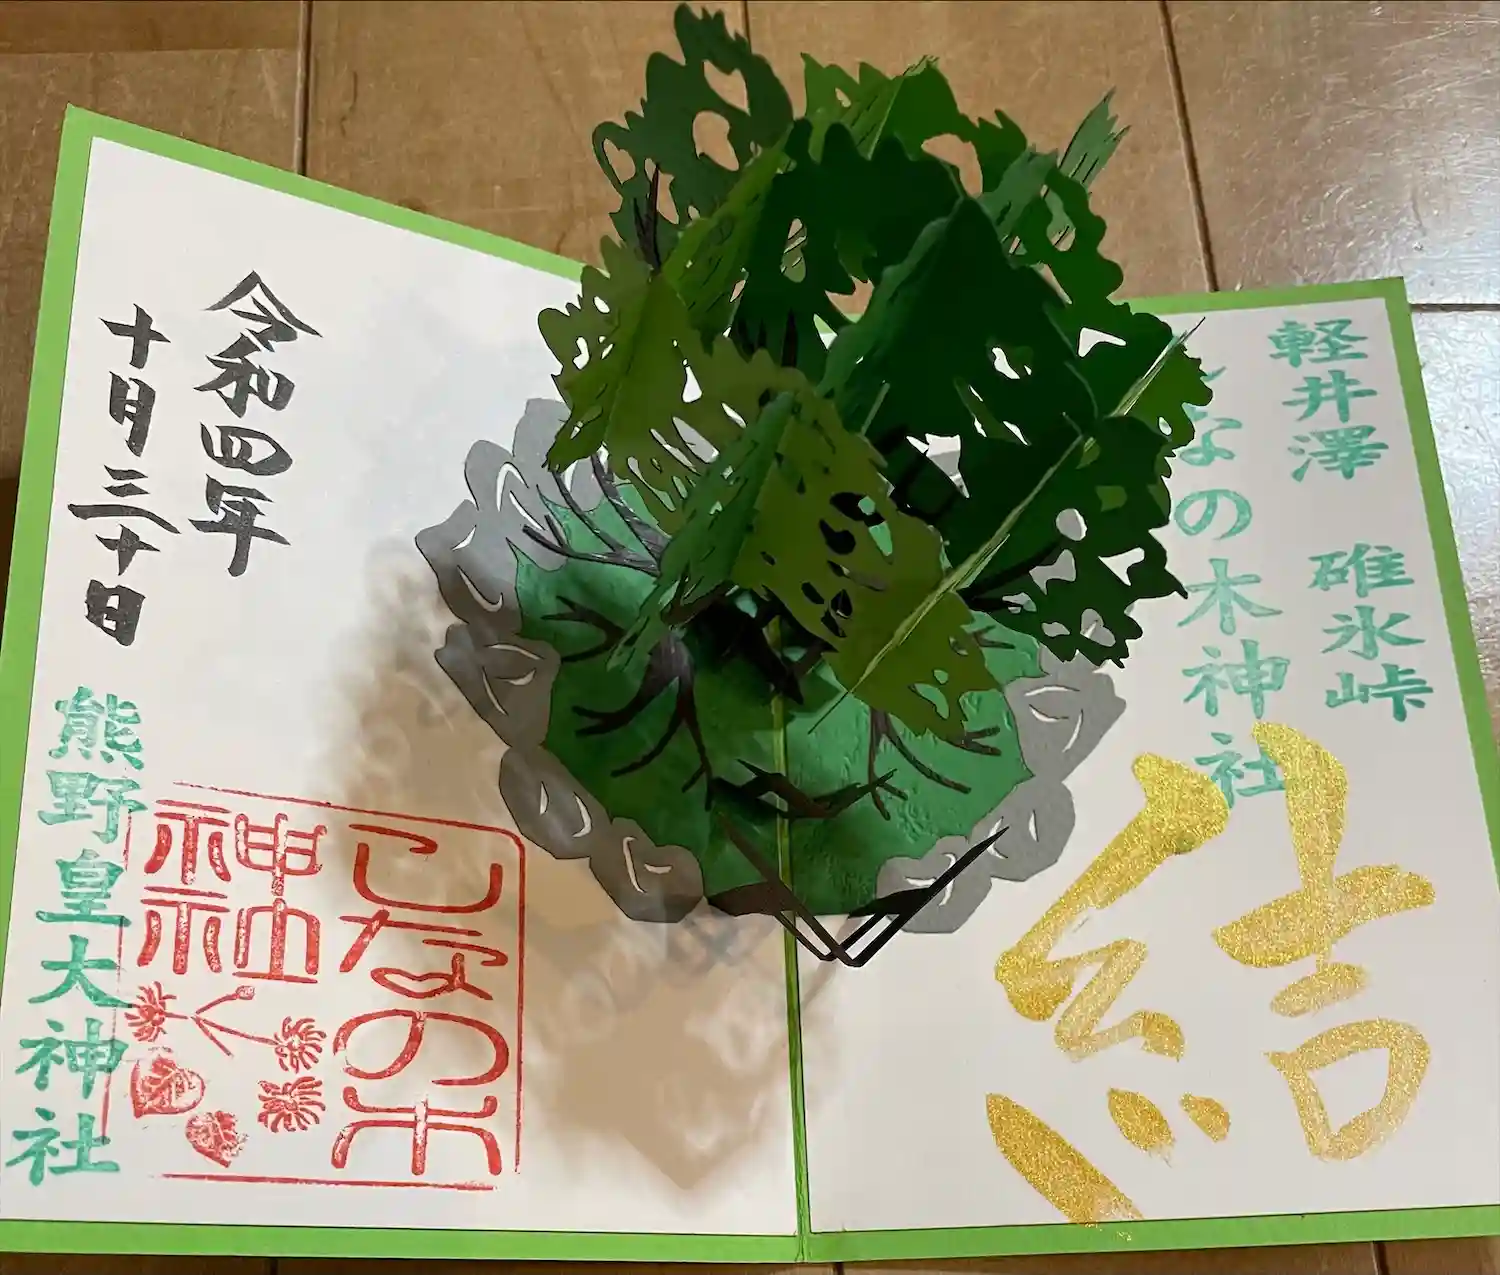 軽井澤　碓氷峠
しなの木神社
結
令和四年
十月三十日
しなの木
神社
熊野皇大神社